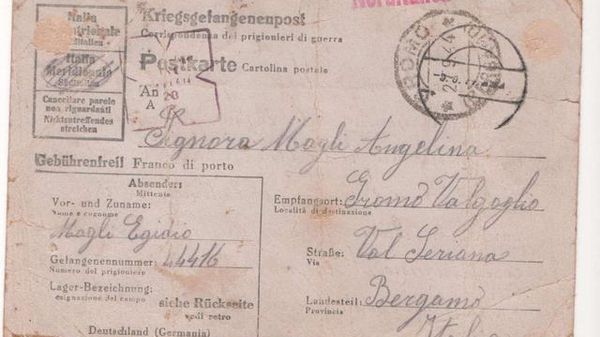 Italia
Süditalien
Italia
Meridionale
Süditalien
Cancellare parole
non riguardanti
Nichtzutreffendes
streichen
Kriegsgefangenenpost
Corrispondenza dei prigionieri di guerra
Postkarte Cartolina postale
An
A
20
Signora Magli Angelina
Gebührenfrei! Franco di porto
Absender:
Mittente
Vor- und Zuname:
Nome e cognome
Magli Egidio
Gefangenennummer: 44416
Numero del prigioniero
Lager-Bezeichnung:
siehe Rückseite
vedi retro
Deutschland (Germania)
Empfangsort: Gromo Valgoglio
Località di destinazione
Straße: Val Seriana
Via
Landesteil: Bergamo
Provincia
Italia